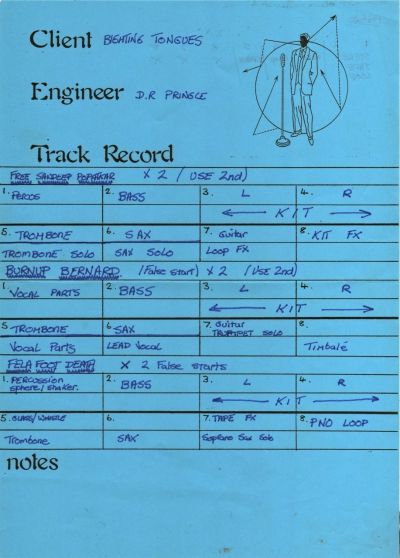 Client BIGHTING TONGUES
Engineer D.R PRINGLE
Track Record
FREE SANDEEP POPATKAR x 2 (USE 2nd)
1. PERCUS 2. BASS 3. L 4. R
← KIT →
5. TROMBONE 6. SAX 7. Guitar 8. KIT FX
TROMBONE SOLO SAX SOLO LOOP FX
BURNUP BERNARD (False start) x 2 (Use 2nd)
1. VOCAL PARTS 2. BASS 3. L 4. R
← KIT →
5. TROMBONE 6. SAX 7. Guitar 8.
TRUMPET SOLO
Vocal Parts LEAD Vocal Timbalé
FELA FOOT DEATH x 2 False starts
1. PERCUSSION 2. BASS 3. L 4. R
sphere/shaker. ← KIT →
5. GLASS/WHISTLE 6. 7. TAPE FX 8. PNO LOOP
Trombone SAX Soprano Sax Solo
notes